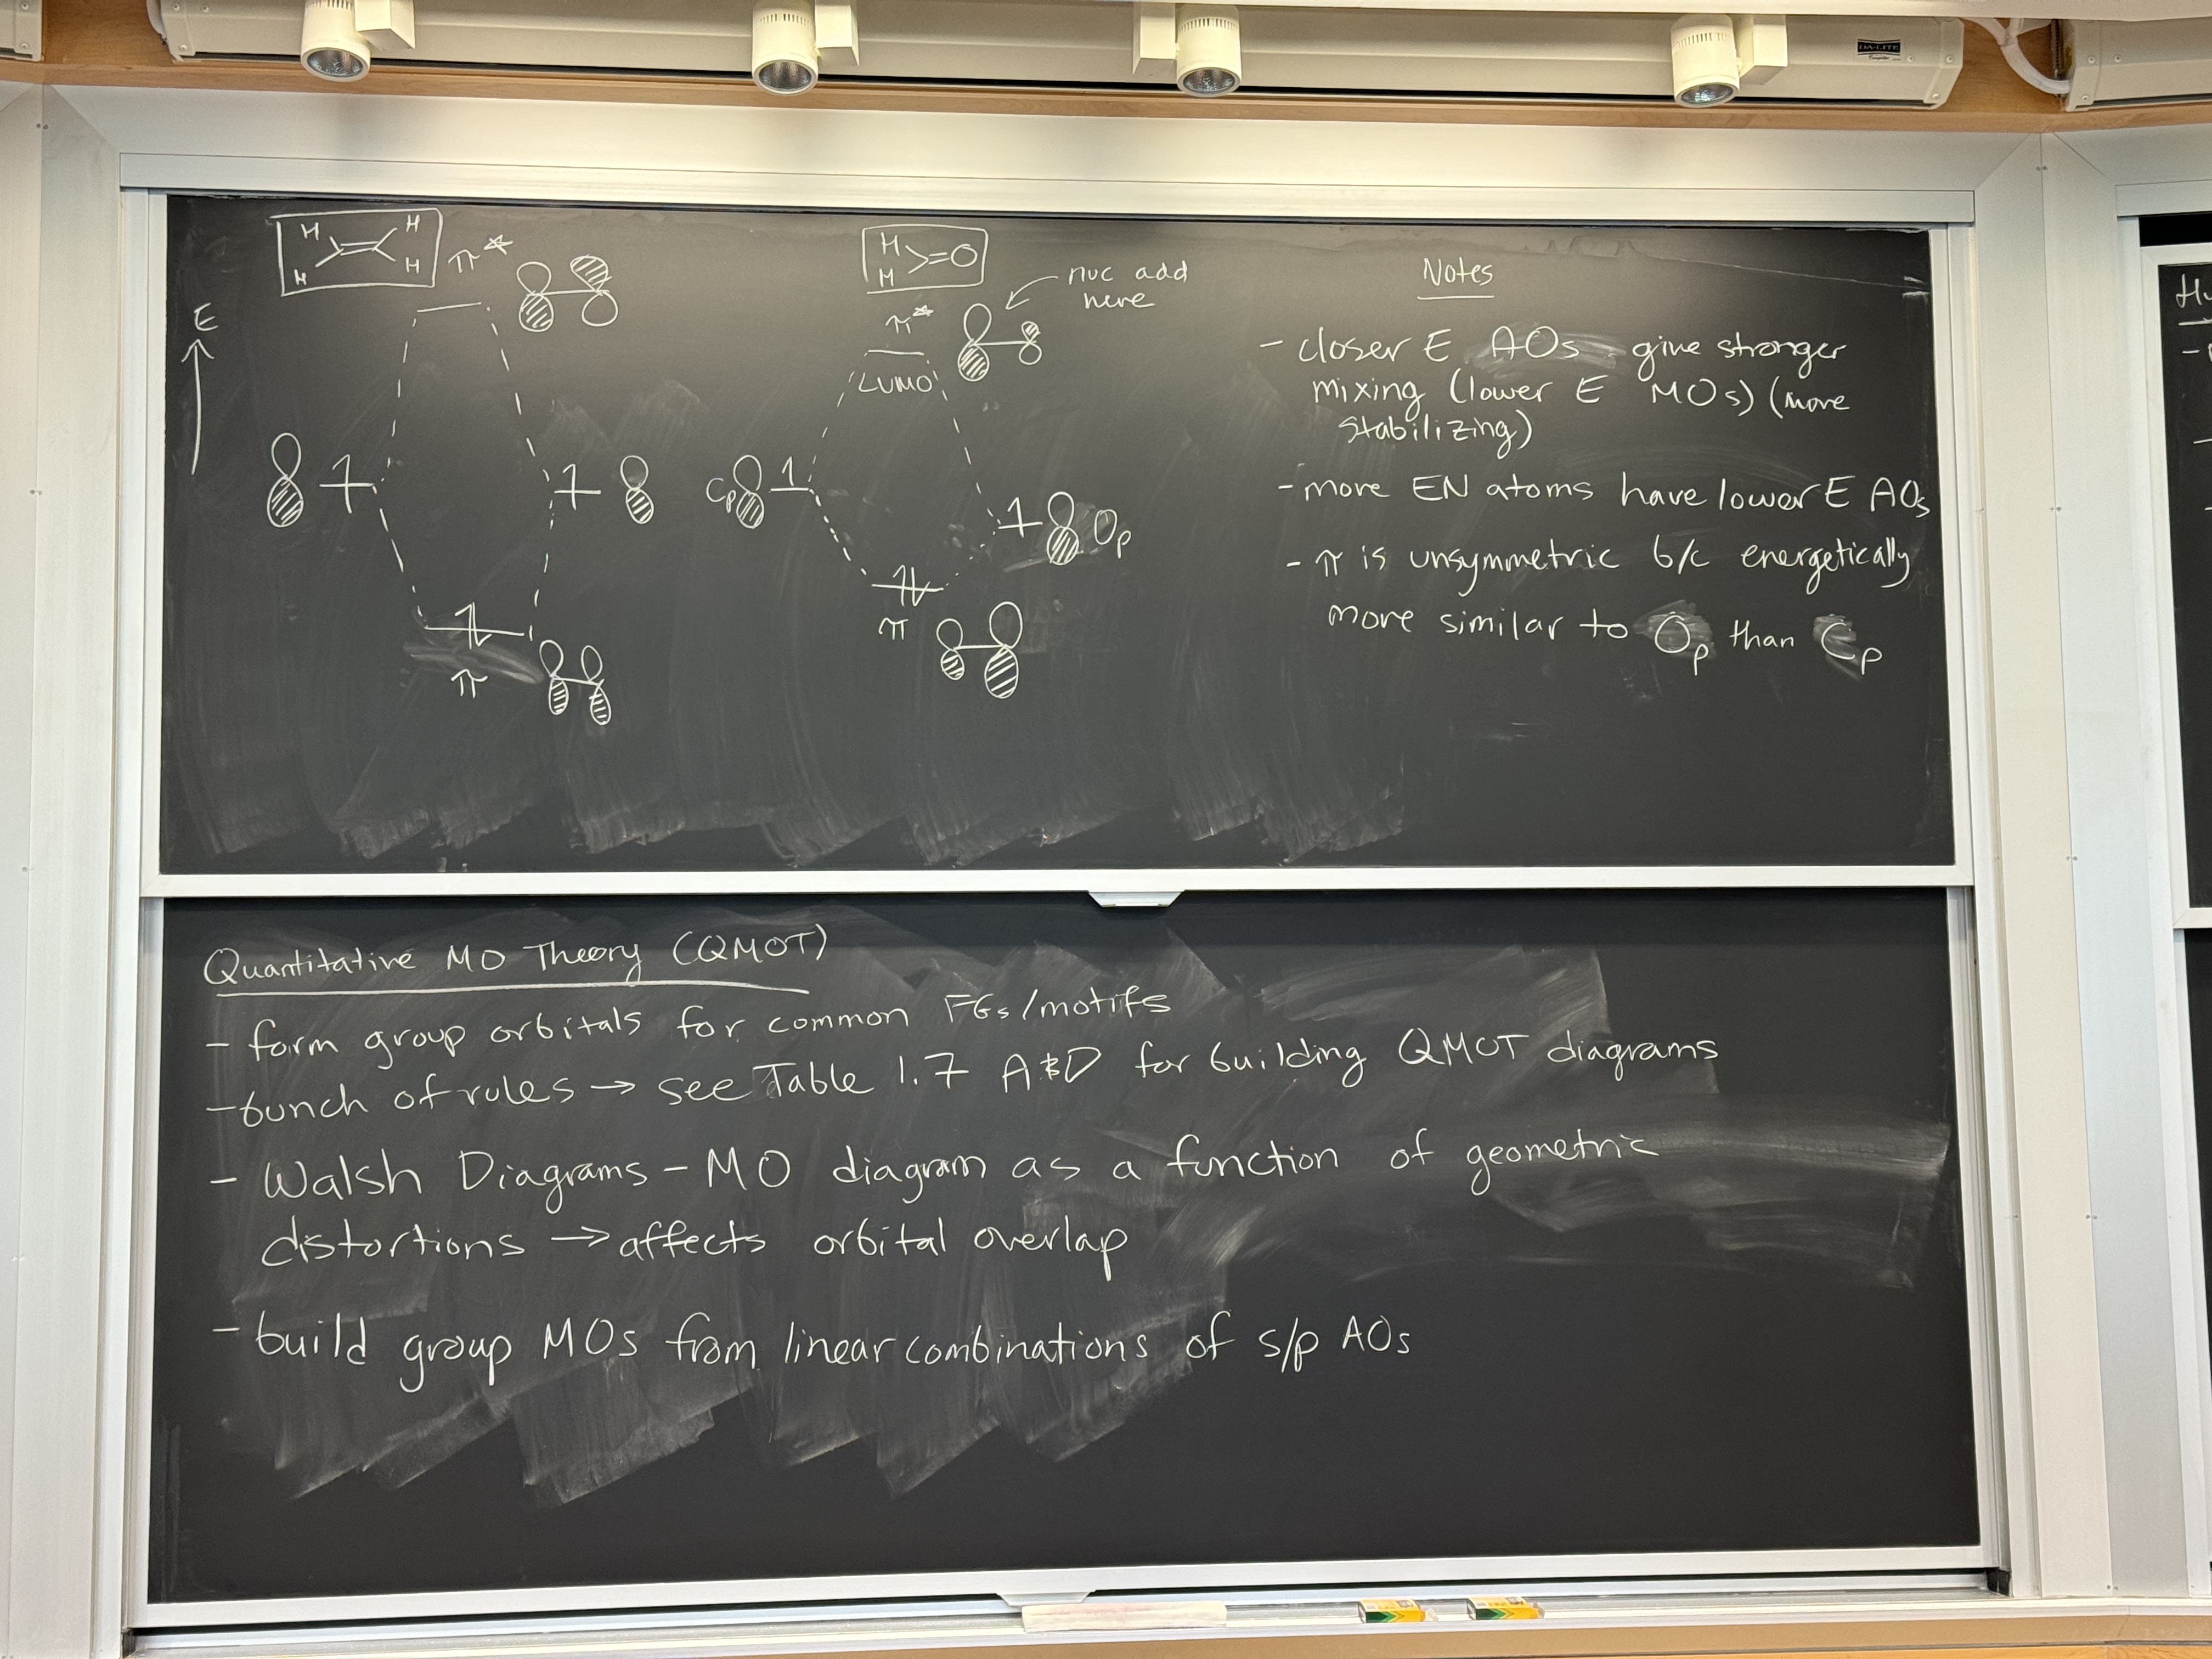 DA-LITE
H H
H H
π*
E
π
H
H O
π*
nuc add
here
LUMO
Cp
Op
π
Notes
- closer E AOs give stronger
mixing (lower E MOs) (more
stabilizing)
- more EN atoms have lower E AOs
- π is unsymmetric b/c energetically
more similar to Op than Cp
Quantitative MO Theory (QMOT)
- form group orbitals for common FGs/motifs
- bunch of rules → see Table 1.7 A&D for building QMOT diagrams
- Walsh Diagrams - MO diagram as a function of geometric
distortions → affects orbital overlap
- build group MOs from linear combinations of s/p AOs